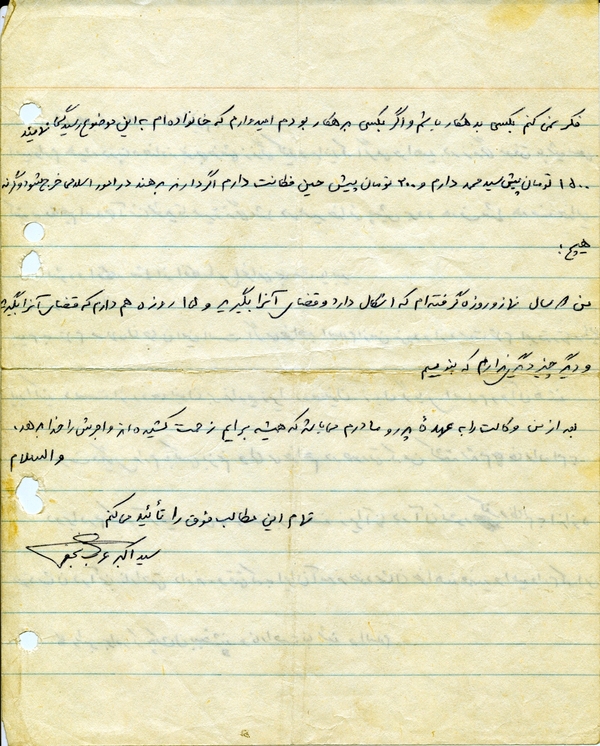 فکر نمی کنم بکسی بدهکار باشم و اگر بکسی بدهکار بودم امیدوارم که خانواده ام به این موضوع رسیدگی نمایند
۱۵۰۰ تومان پیش سید محمد دارم و ۳۰۰ تومان پیش حسین دارم اگر دارند بدهند در امور اسلامی خرج شود وگرنه
هیچ؛
من ۸ سال نماز و روزه گرفته ام که اشکال دارد و قضای آنرا بگیرید و ۱۵ روزه هم دارم که قضای آنرا بگیرید
و دیگر چیز دیگری ندارم که بنویسم
بعد از من وکالت را به عهدهٔ پدر و مادرم میباشد که همیشه برایم زحمت کشیده اند و اجرش را خدا بدهد.
والسلام
تمام این مطالب فوق را تأئید میکنم
سید اکبر